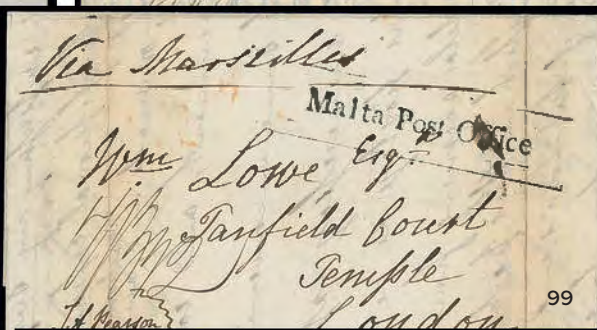 Via Marseilles
Malta Post Office
Wm Lowe Esqr
Tanfield Court
Temple
J A Pearson
London
99